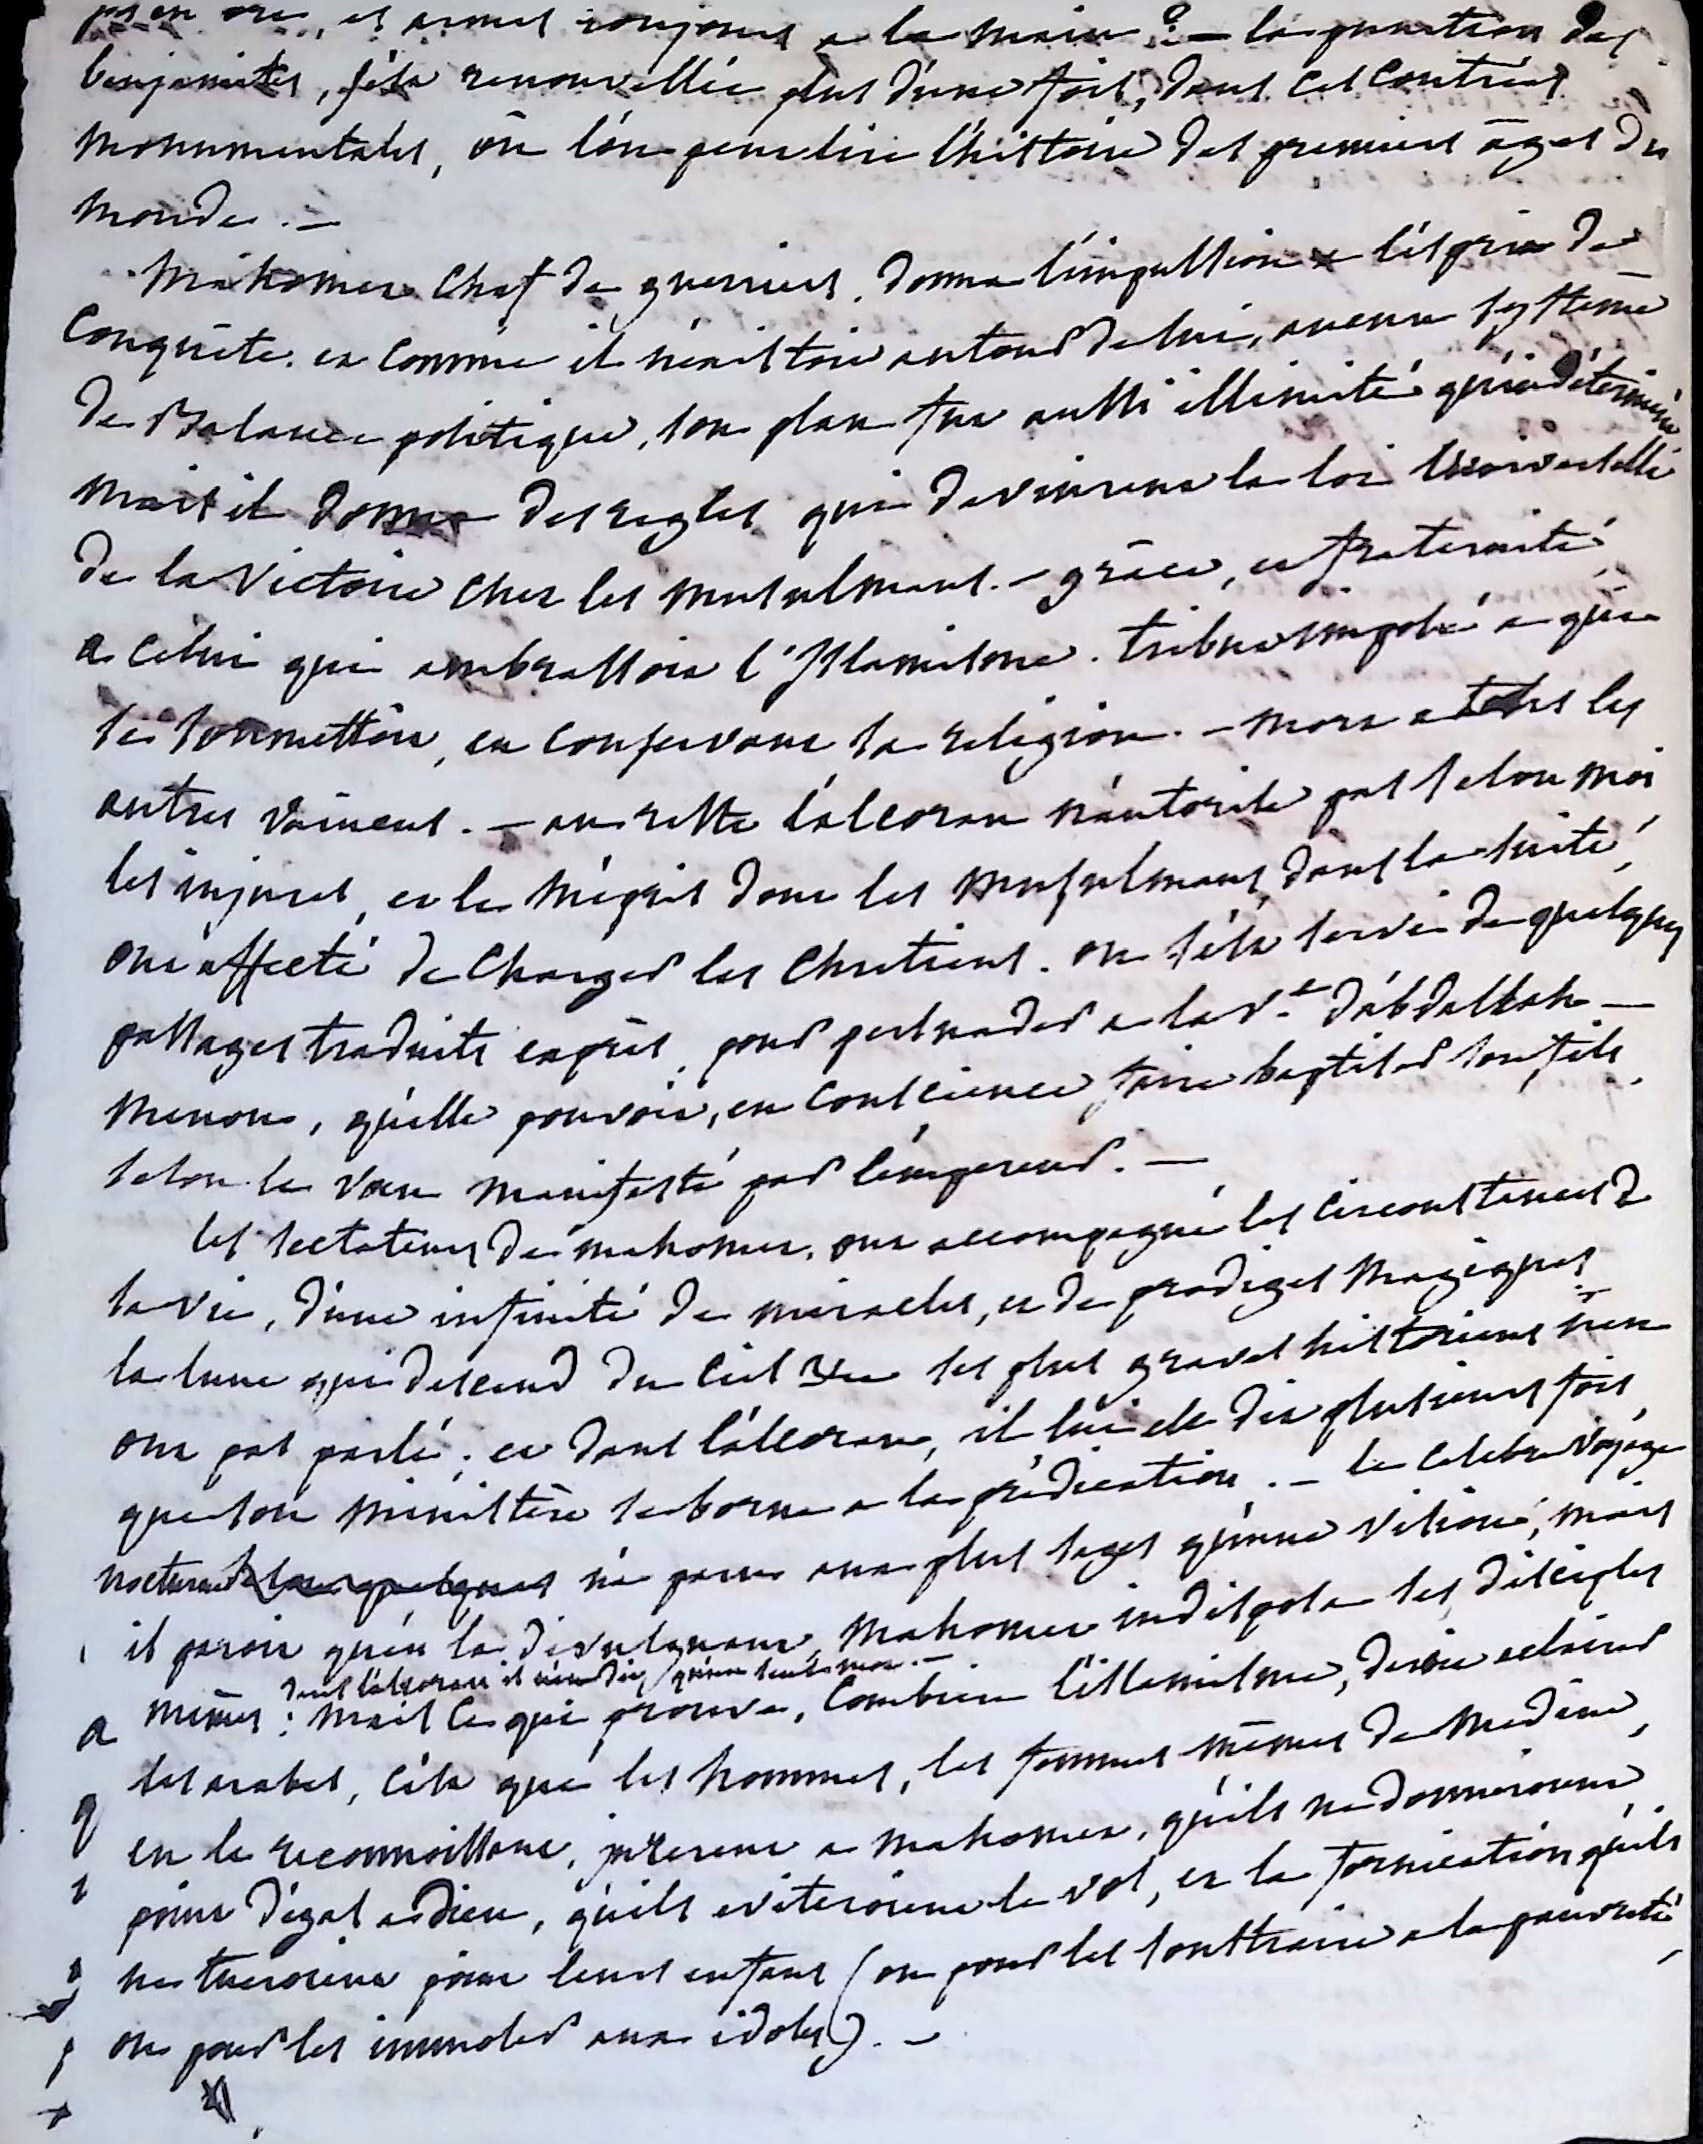 et armés toujours a la main ? — la punition des
benjamites, s'est renouvellée plus d'une fois, dans ces contrées
monumentales, ou l'on peut lire l'histoire des premiers âges du
monde. —
Mahomet chef de guerriers, donna l'impulsion a l'esprit de
Conquête. et comme il n'existoit autour de lui, aucun systême
de Balance politique, son plan fut aussi illimité qu'indéterminé,
mais il donna des regles qui devinrent la loi universelle
de la Victoire chez les musulmans. — grâce, et fraternité,
a celui qui embrassoit l'Islamisme. tribut imposé a qui
se soumettoit, en conservant sa religion. — mort a tous les
autres vaincus. — au reste l'alcoran n'autorise pas selon moi,
les injures, et le mépris dont les musulmans, dans la suite,
ont affecté de charger les chretiens. on s'est servi de quelques
passages traduits exprès, pour persuader a la v.e d'abdallah —
Menou, qu'elle pouvoit, en conscience faire baptiser son fils,
selon le vœu manifesté par l'empereur. —
les sectateurs de mahomet, ont accompagné les circonstances de
sa vie, d'une infinité de miracles, et de prodiges magiques
la lune qui descend du Ciel les plus graves historiens n'en
ont pas parlé ; et dans l'alcoran, il lui est dit plusieurs fois,
que son ministère se borne a la prédication. — le celebre voyage
nocturne n'a paru aux plus sages qu'une vision, mais
il paroit qu'en la divulguant, Mahomet indisposa ses disciples
dans l'alcoran il n'en dit, qu'un seul mot. —
mêmes : mais ce qui prouve, combien l'islamisme, dut eclairer
les arabes, c'est que les hommes, les femmes mêmes de Medine,
en le reconnoissant, jurerent a mahomet, qu'ils ne donneroient
point d'égal a dieu, qu'ils eviteroient le vol, et la fornication, qu'ils
ne tueroient point leurs enfans (ou pour les soustraire a la pauvreté,
ou pour les immoler aux idoles). —